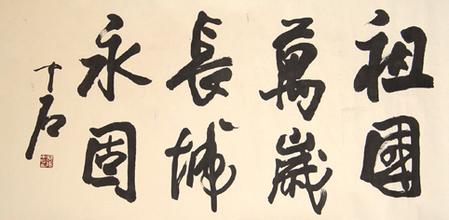 祖國
萬歲
長城
永固